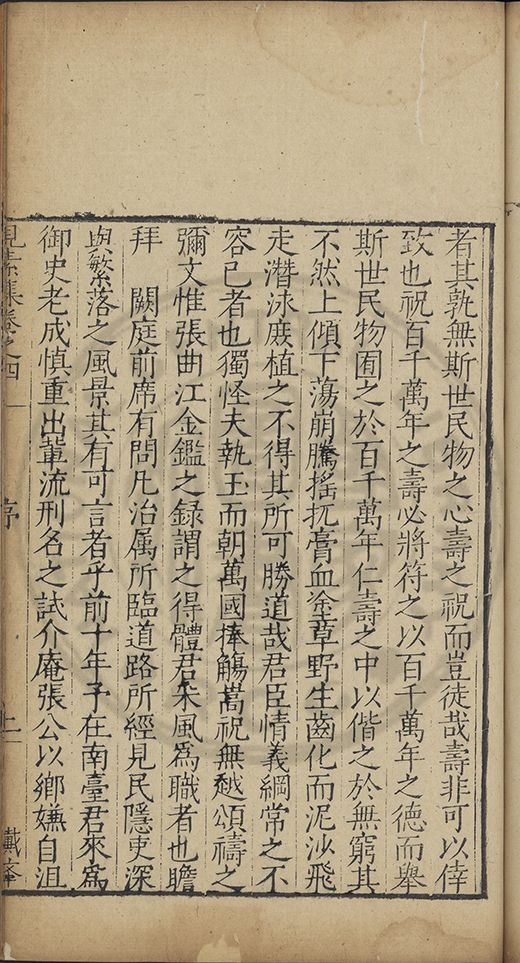 者其孰無斯世民物之心壽之祝而豈徒哉壽非可以倖
致也祝百千萬年之壽必將符之以百千萬年之德而舉
斯世民物囿之於百千萬年仁壽之中以偕之於無窮其
不然上傾下蕩崩騰搖扤膏血塗草野生齒化而泥沙飛
走潛泳蕨植之不得其所可勝道哉君臣情義綱常之不
容已者也獨怪夫執玉而朝萬國捧觴嵩祝無越頌禱之
彌文惟張曲江金鑑之録謂之得體君采風為職者也瞻
拜 闕庭前席有問凡治属所臨道路所經見民隱吏深
與繁落之風景其有可言者乎前十年予在南臺君來為
御史老成慎重出輩流刑名之試介庵張公以鄉嫌自沮
見素集卷之四 序 上 戴奎